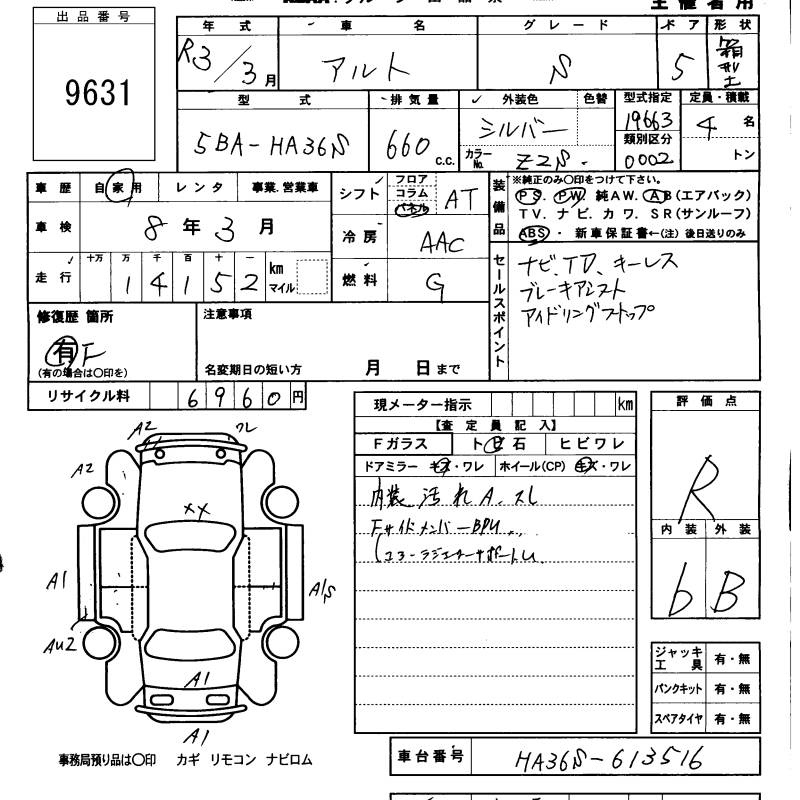 出品番号
9631
年式 車名 グレード ドア 形状
R3/3月 アルト S 5 箱型
型式 排気量 外装色 色替 型式指定 定員・積載
5BA-HA36S 660 c.c. シルバー 19663 4名
カラーNo. Z2S 類別区分 0002 トン
車歴 自家用 レンタ 事業.営業車
車検 8年3月
走行 十万 万 千 百 十 一
1 4 1 5 2 km マイル
シフト フロア コラム パネル AT
冷房 AAC
燃料 G
装備品
※純正のみ〇印をつけて下さい。
PS. PW. 純AW. AB(エアバック)
TV. ナビ. カワ. SR(サンルーフ)
ABS・新車保証書←(注)後日送りのみ
セールスポイント
ナビ、TD、キーレス
ブレーキアシスト
アイドリングストップ
修復歴 箇所
有 F
(有の場合は〇印を)
注意事項
名変期日の短い方 月 日まで
リサイクル料 6960円
現メーター指示 km
【査定員記入】
Fガラス トビ石 ヒビワレ
ドアミラー キズ・ワレ ホイール(CP) キズ・ワレ
内装 汚れA.スレ
FサイドメンバーBPU
コアーラジエターサポートU
評価点
R
内装 外装
b B
ジャッキ工具 有・無
パンクキット 有・無
スペアタイヤ 有・無
A2 ワレ
A2
XX
A1 A1S
AU2
A1
A1
事務局預り品は〇印 カギ リモコン ナビロム
車台番号 HA36S-613516